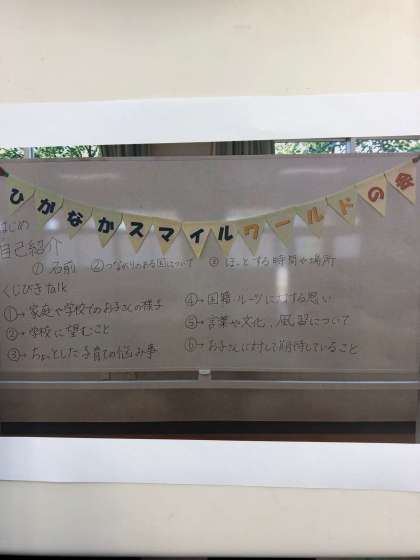 ひがなかスマイルワールドの会
はじめ
自己紹介
① 名前 ②つながりのある国について ③ ほっとする時間や場所
くじびきtalk
①→家庭や学校でのお子さんの様子
②→学校に望むこと
③→ちょっとした子育ての悩み事
④→国籍・ルーツに対する思い
⑤→言葉や文化、風習について
⑥→お子さんに対して期待していること